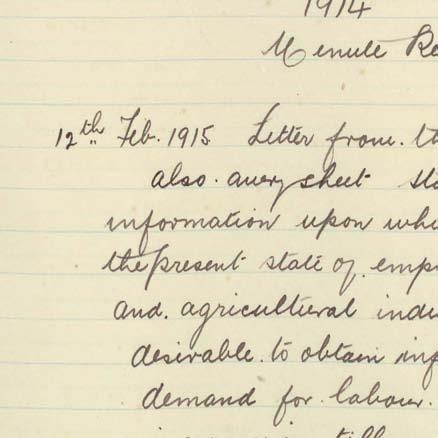 1914
Minute
12th Feb. 1915 Letter from
also query sheet
information upon
the present state of
and agricultural
desirable to obtain
demand for labour.